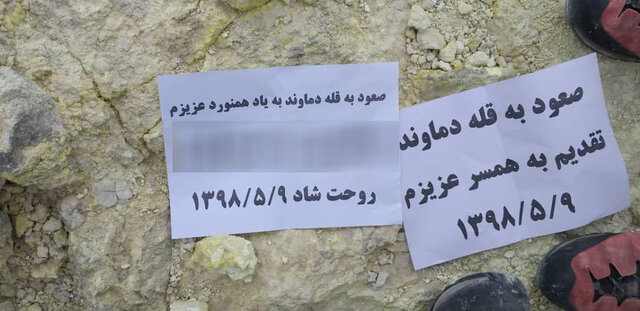 صعود به قله دماوند به یاد همنورد عزیزم
روحت شاد ۱۳۹۸/۵/۹
صعود به قله دماوند
تقدیم به همسر عزیزم
۱۳۹۸/۵/۹